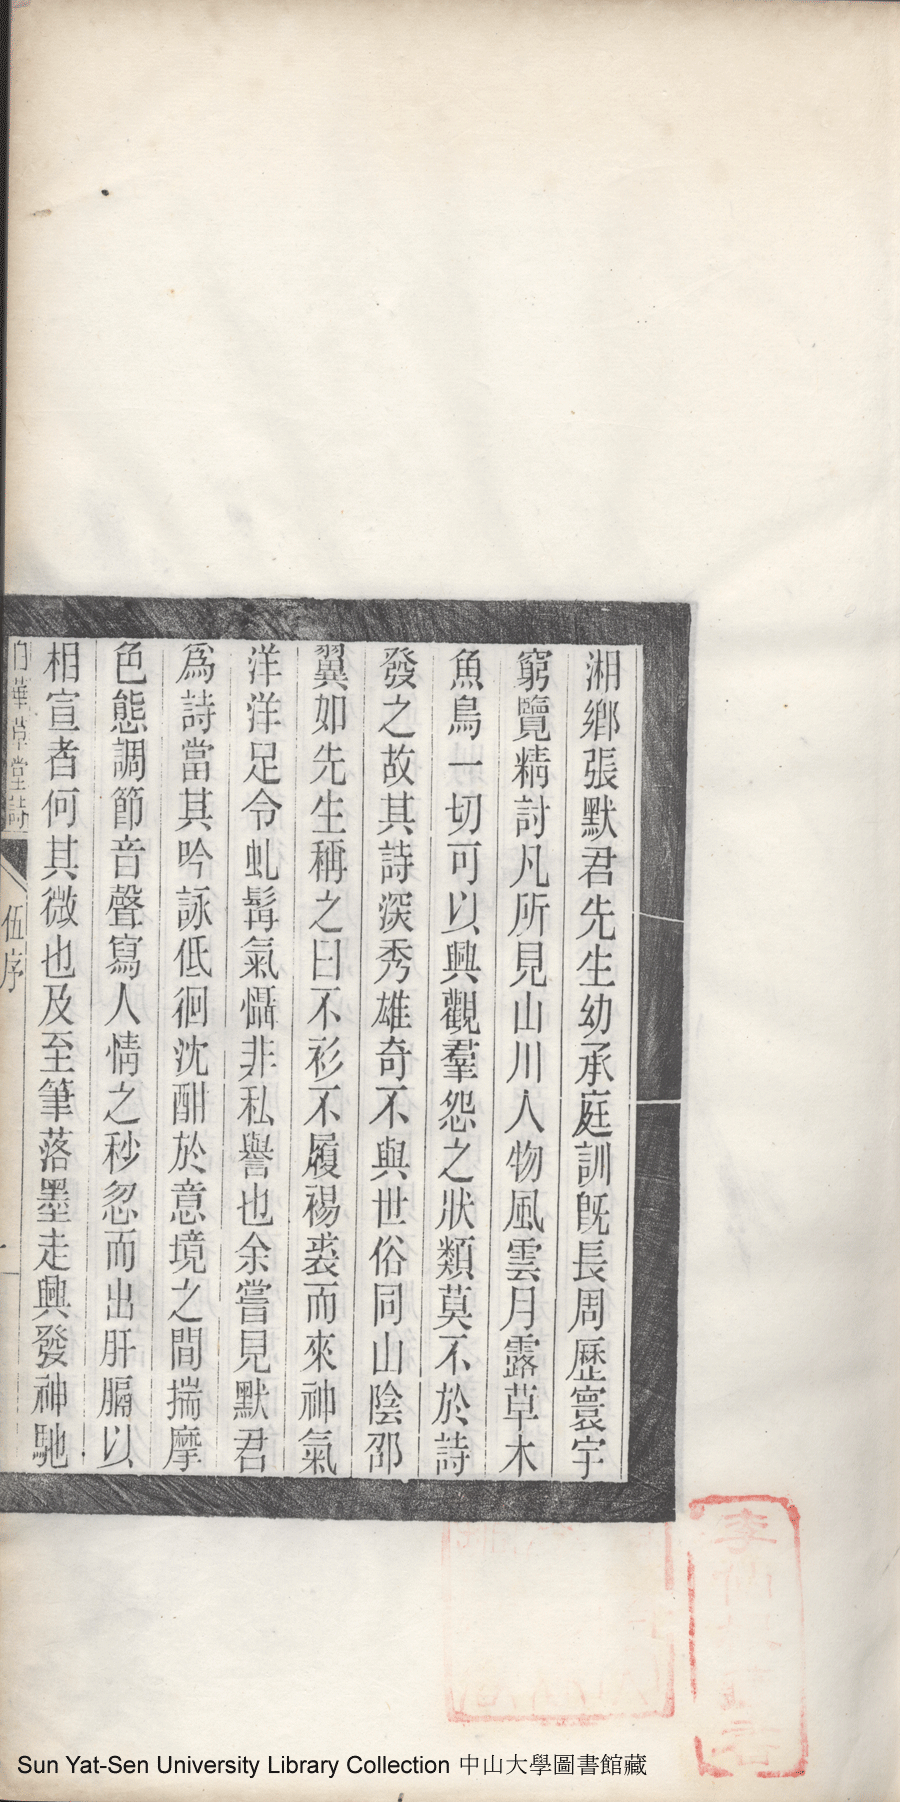 湘鄉張默君先生幼承庭訓既長周歷寰宇
窮覽精討凡所見山川人物風雲月露草木
魚鳥一切可以興觀羣怨之狀類莫不於詩
發之故其詩深秀雄奇不與世俗同山陰邵
翼如先生稱之曰不衫不履裼裘而來神氣
洋洋足令虬髯氣懾非私譽也余嘗見默君
爲詩當其吟詠低徊沈酣於意境之間揣摩
色態調節音聲寫人情之秒忽而出肝膈以
相宣者何其微也及至筆落墨走興發神馳
白華草堂詩 伍序 一
Sun Yat-Sen University Library Collection 中山大學圖書館藏